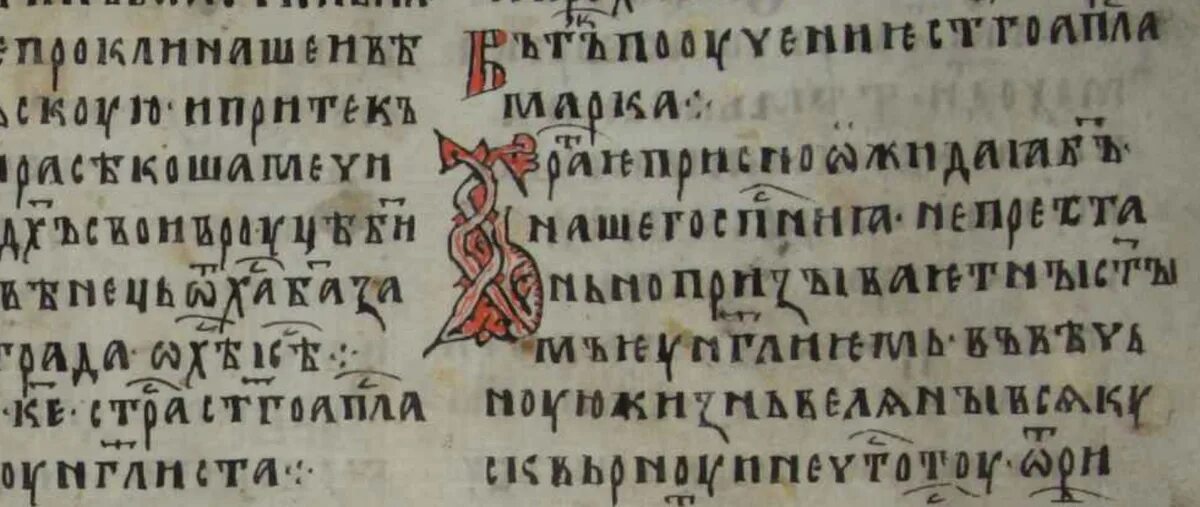 епроклинашенвѣ
ьскоую· ипритекъ
прасѣкошамечи
дх҃ъсвоивъроуцѣбж҃и
вѣнець ѿ х҃а б҃а за
града· ѡ х҃ѣ і с҃ѣ ⁘
·к҃е· стр҃астс҃тгоап҃ла
оуинг҃листа ⁘
Въ тъ поѹченине ст҃гоап҃ла
марка ⁘
братне присно ѡжидаꙗ б҃ъ·
нашегосп҃сниꙗ· непреста
ньнопризываѥтнъіст҃ъі
мь ѥуиг҃линемь· въвѣчь
ноуюжизньвелѧнъівсѧку
сквьрноуинечт҃отоу· ѿри